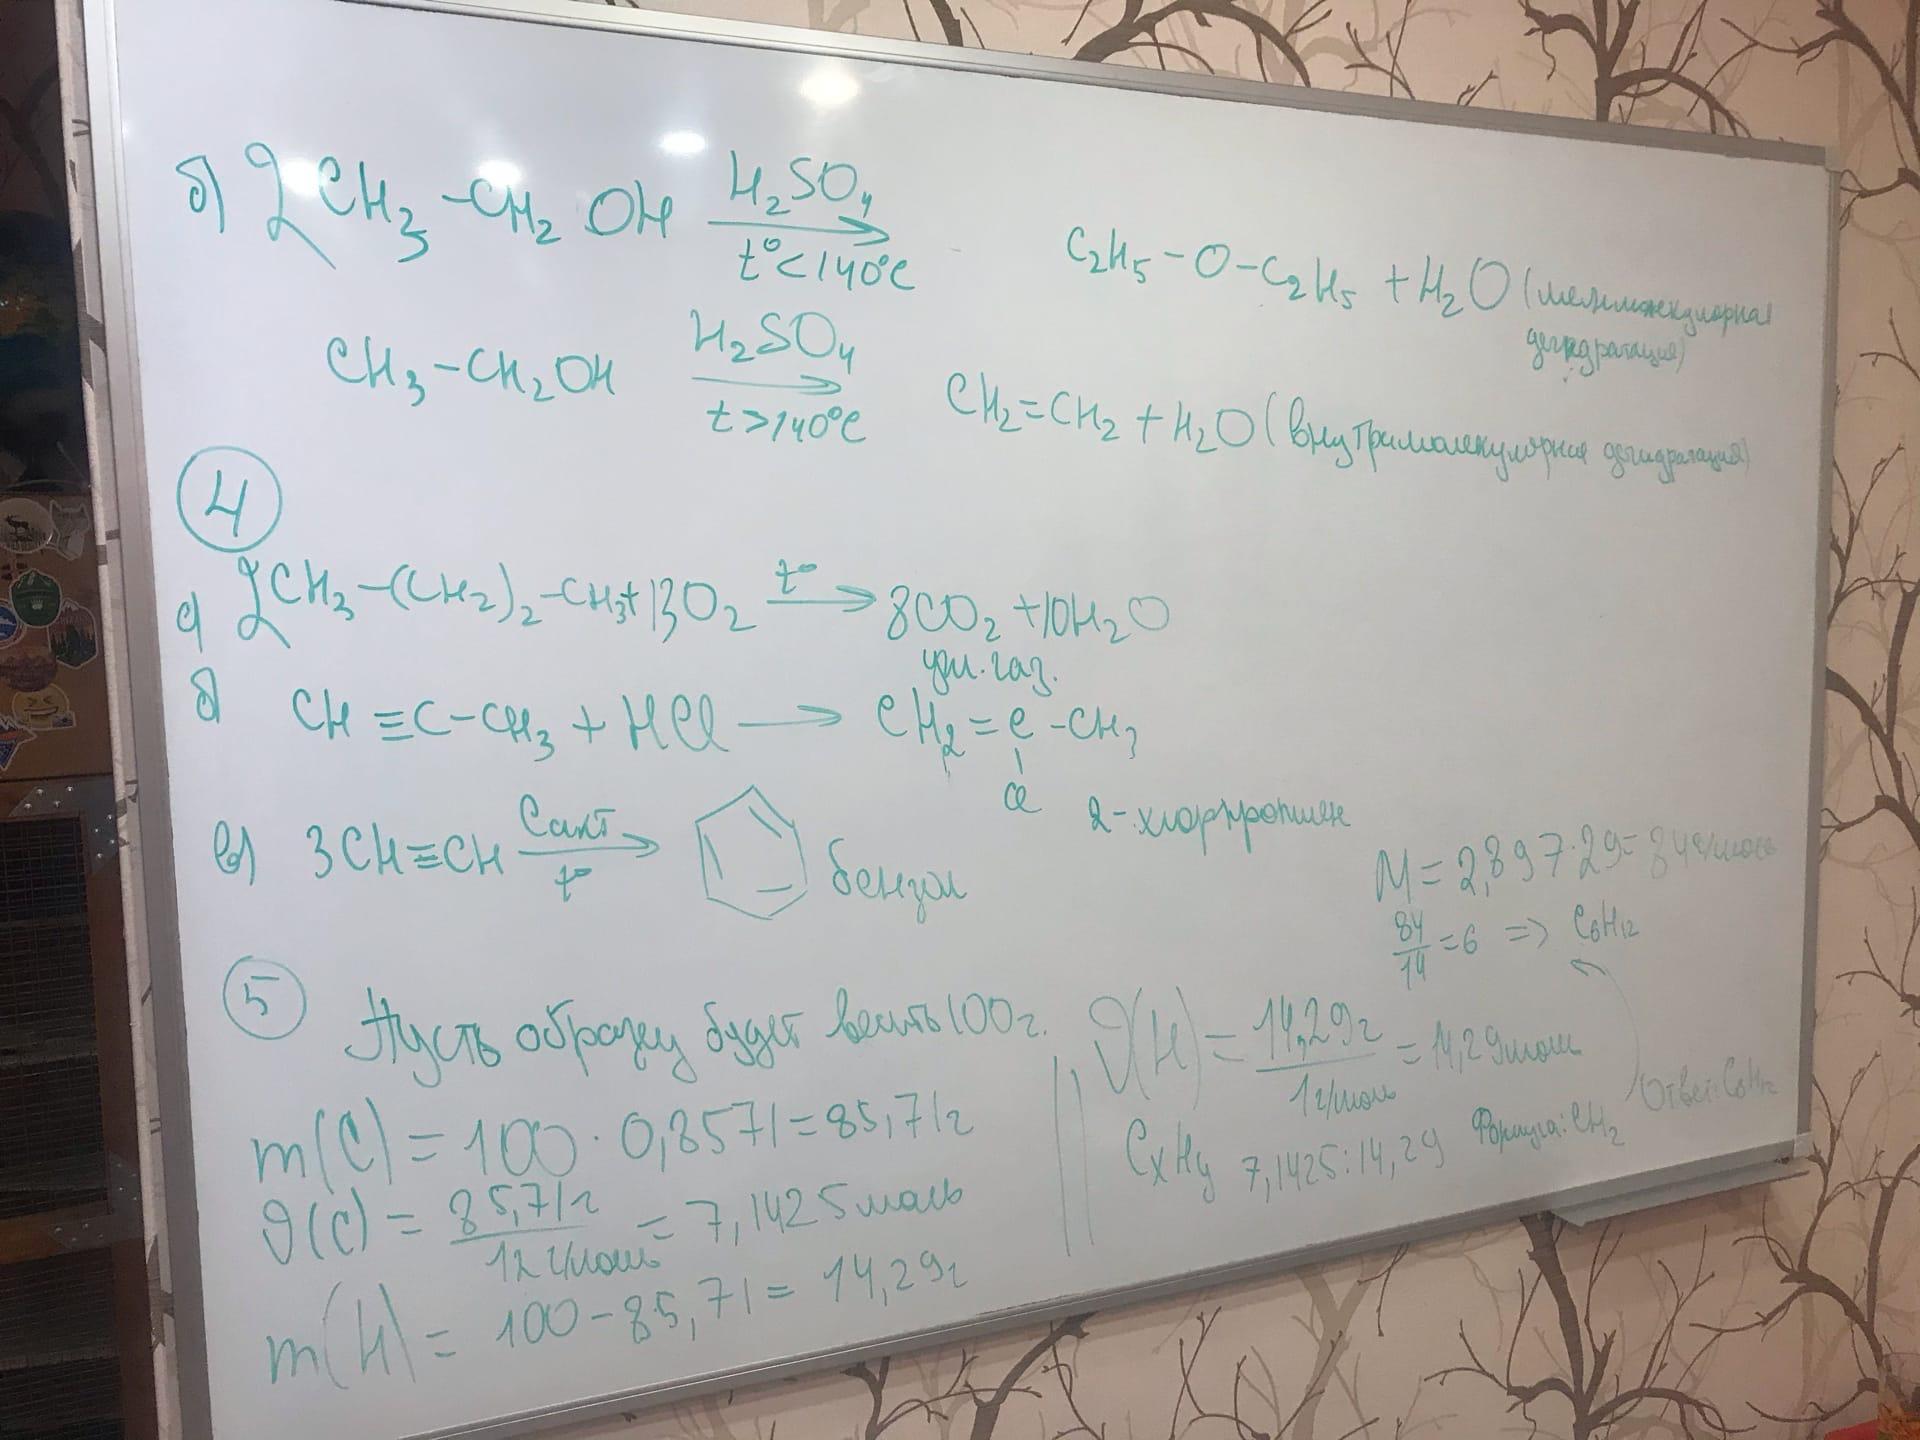 б) 2CH₃-CH₂OH H₂SO₄ t°<140°C → C₂H₅-O-C₂H₅ + H₂O (межмолекулярная
дегидратация)
CH₃-CH₂OH H₂SO₄ t>140°C → CH₂=CH₂ + H₂O (внутримолекулярная дегидратация)
4
а) 2CH₃-(CH₂)₂-CH₃+13O₂ t° → 8CO₂ + 10H₂O
угл. газ.
б) CH≡C-CH₃ + HCl → CH₂=C-CH₃
Cl
2-хлорпропен
в) 3CH≡CH Cакт t° → бензол
M = 2,897·29=84г/моль
84/14 =6 => C₆H₁₂
5 Пусть образец будет весить 100г.
m(C) = 100·0,8571=85,71г
ν(C) = 85,71г/12г/моль = 7,1425моль
m(H) = 100-85,71= 14,29г
ν(H) = 14,29г/1г/моль = 14,29моль
CxHy 7,1425:14,29 Формула: CH₂
Ответ: C₆H₁₂